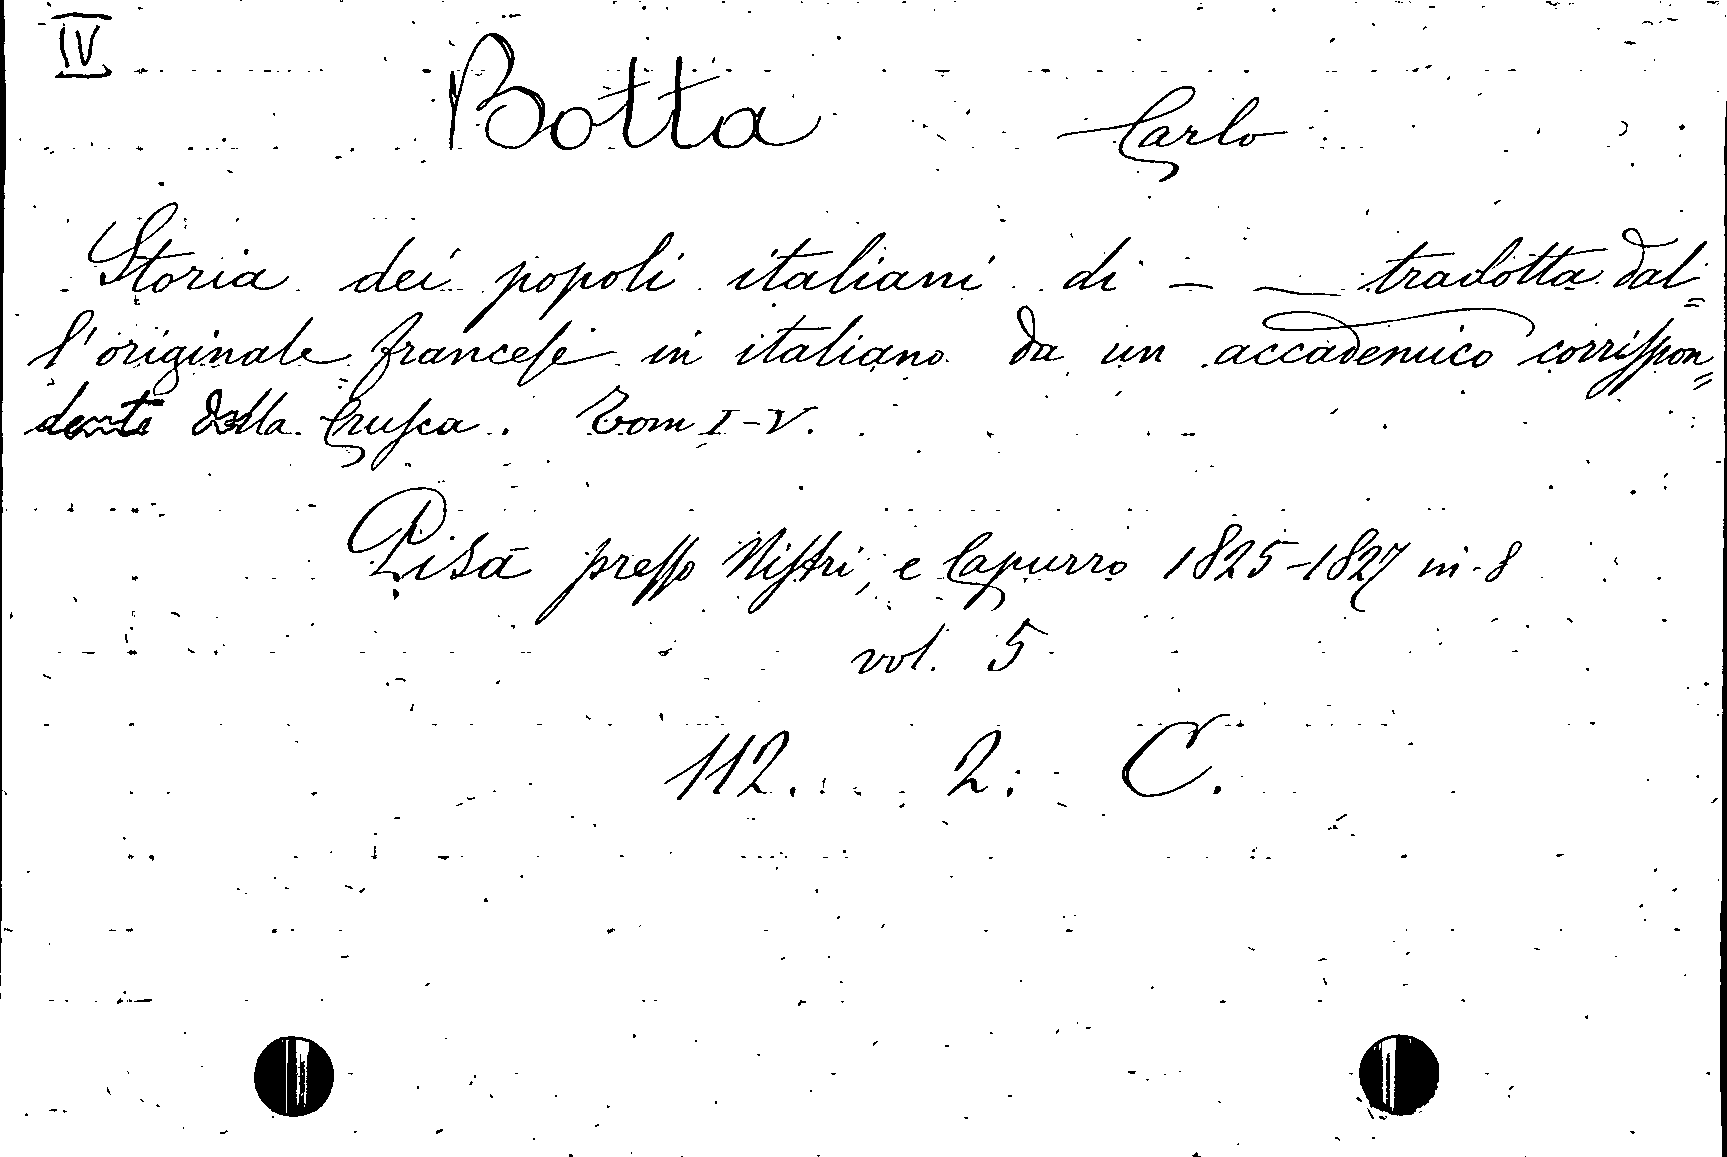 IV
Botta Carlo
Storia dei popoli italiani di — — tradotta dal=
l'originale franceſe in italiano da un accademico corriſpon=
dente della Cruſca. Tom I-V.
Pisa preſſo Niſtri, e Capurro 1825-1827 in-8
vol. 5
112. 2. C.